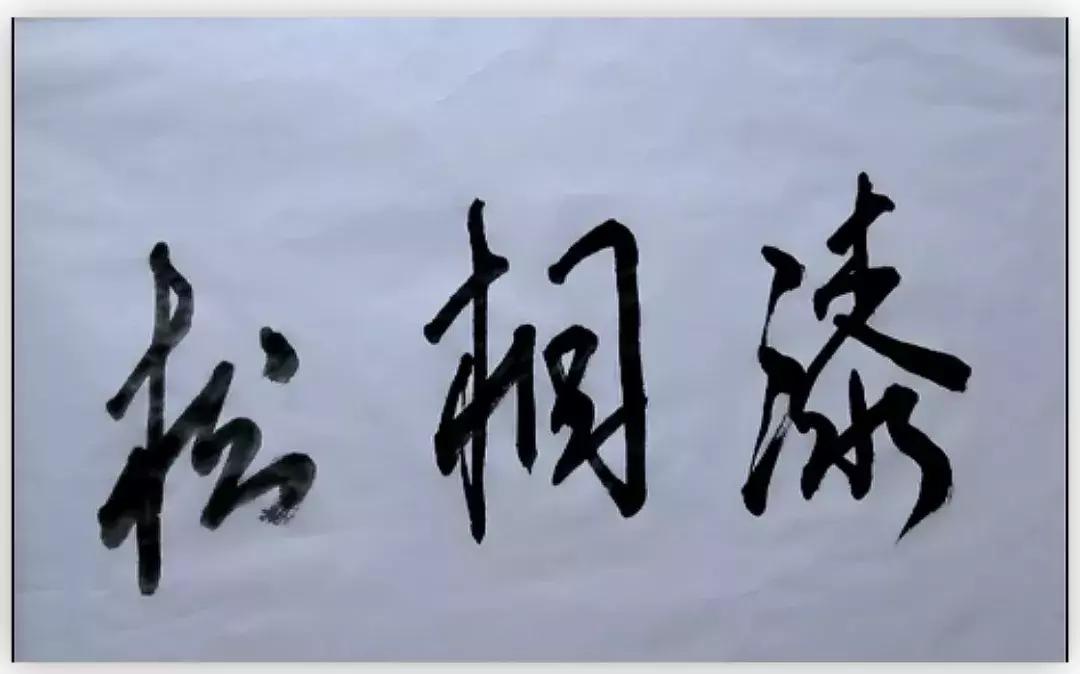 漆桐松